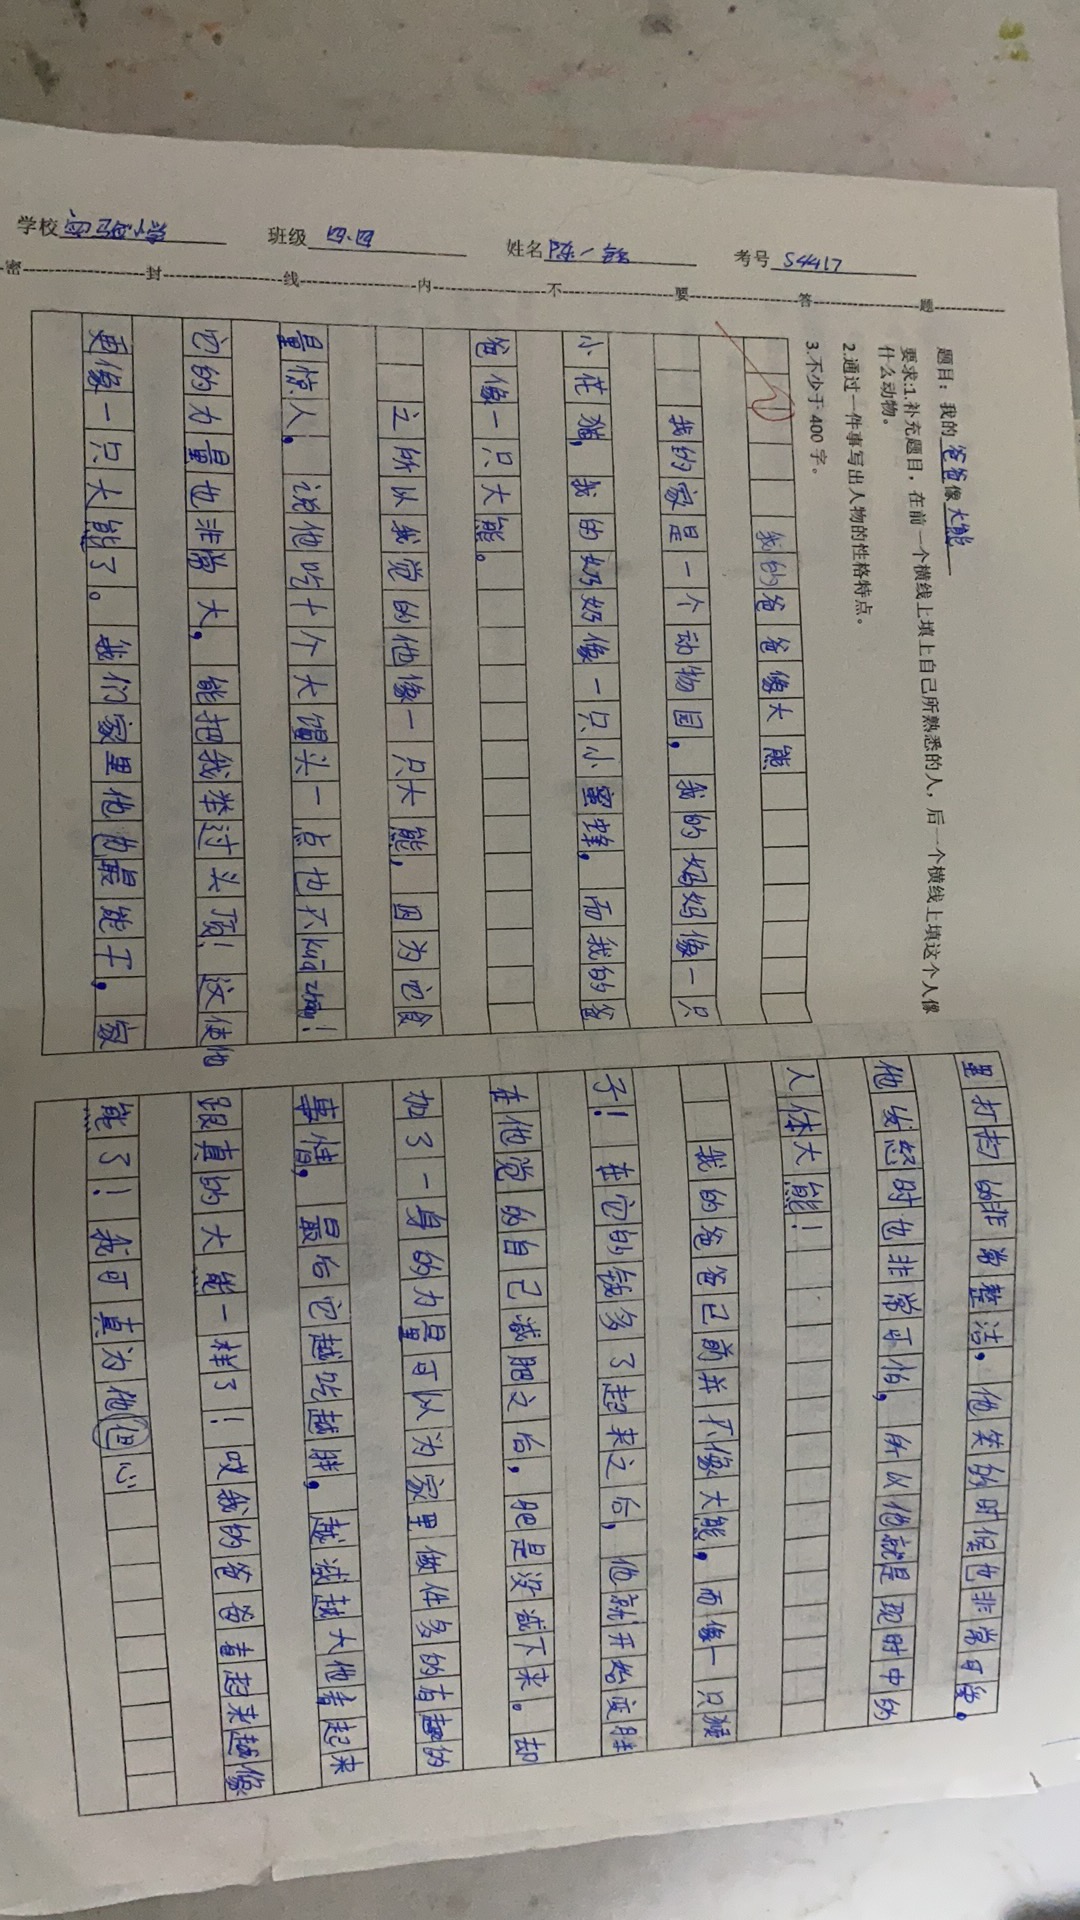 学校 实验小学 班级 四.四 姓名 陈一 考号 54417
密 封 线 内 不 要 答 题
题目：我的爸爸像大熊
要求:1.补充题目，在前一个横线上填上自己所熟悉的人，后一个横线上填这个人像
什么动物。
2.通过一件事写出人物的性格特点。
3.不少于 400 字。
我的爸爸像大熊
我的家是一个动物园，我的妈妈像一只
小花猫，我的奶奶像一只小蜜蜂，而我的爸
爸像一只大熊。
之所以我觉的他像一只大熊，因为它食
量惊人，说他吃十个大馒头一点也不kuā zhāng！
它的力量也非常大，能把我举过头顶！这使他
更像一只大熊了。我们家里他也最能干，家
里打扫的非常整洁，他笑的时候也非常可爱，
他发怒时也非常可怕，所以他就是现时中的
人体大熊！
我的爸爸已前并不像大熊，而像一只猴
子！在它的钱多了起来之后，他就开始变胖
在他觉的自己减肥之后，肥是没减下来。却
加了一身的力量可以为家里做件多的有趣的
事情，最后它越吃越胖，越减越大他看起来
跟真的大熊一样了！哎我的爸爸看起来越像
熊了！我可真为他但心